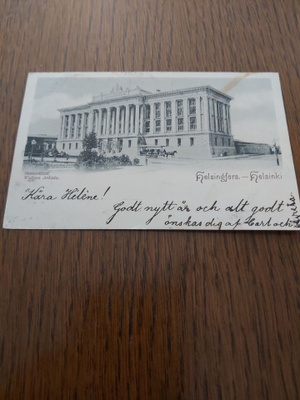 Helsingfors. — Helsinki
Kära Helène!
Godt nytt år och allt godt
önskas dig af Carl och